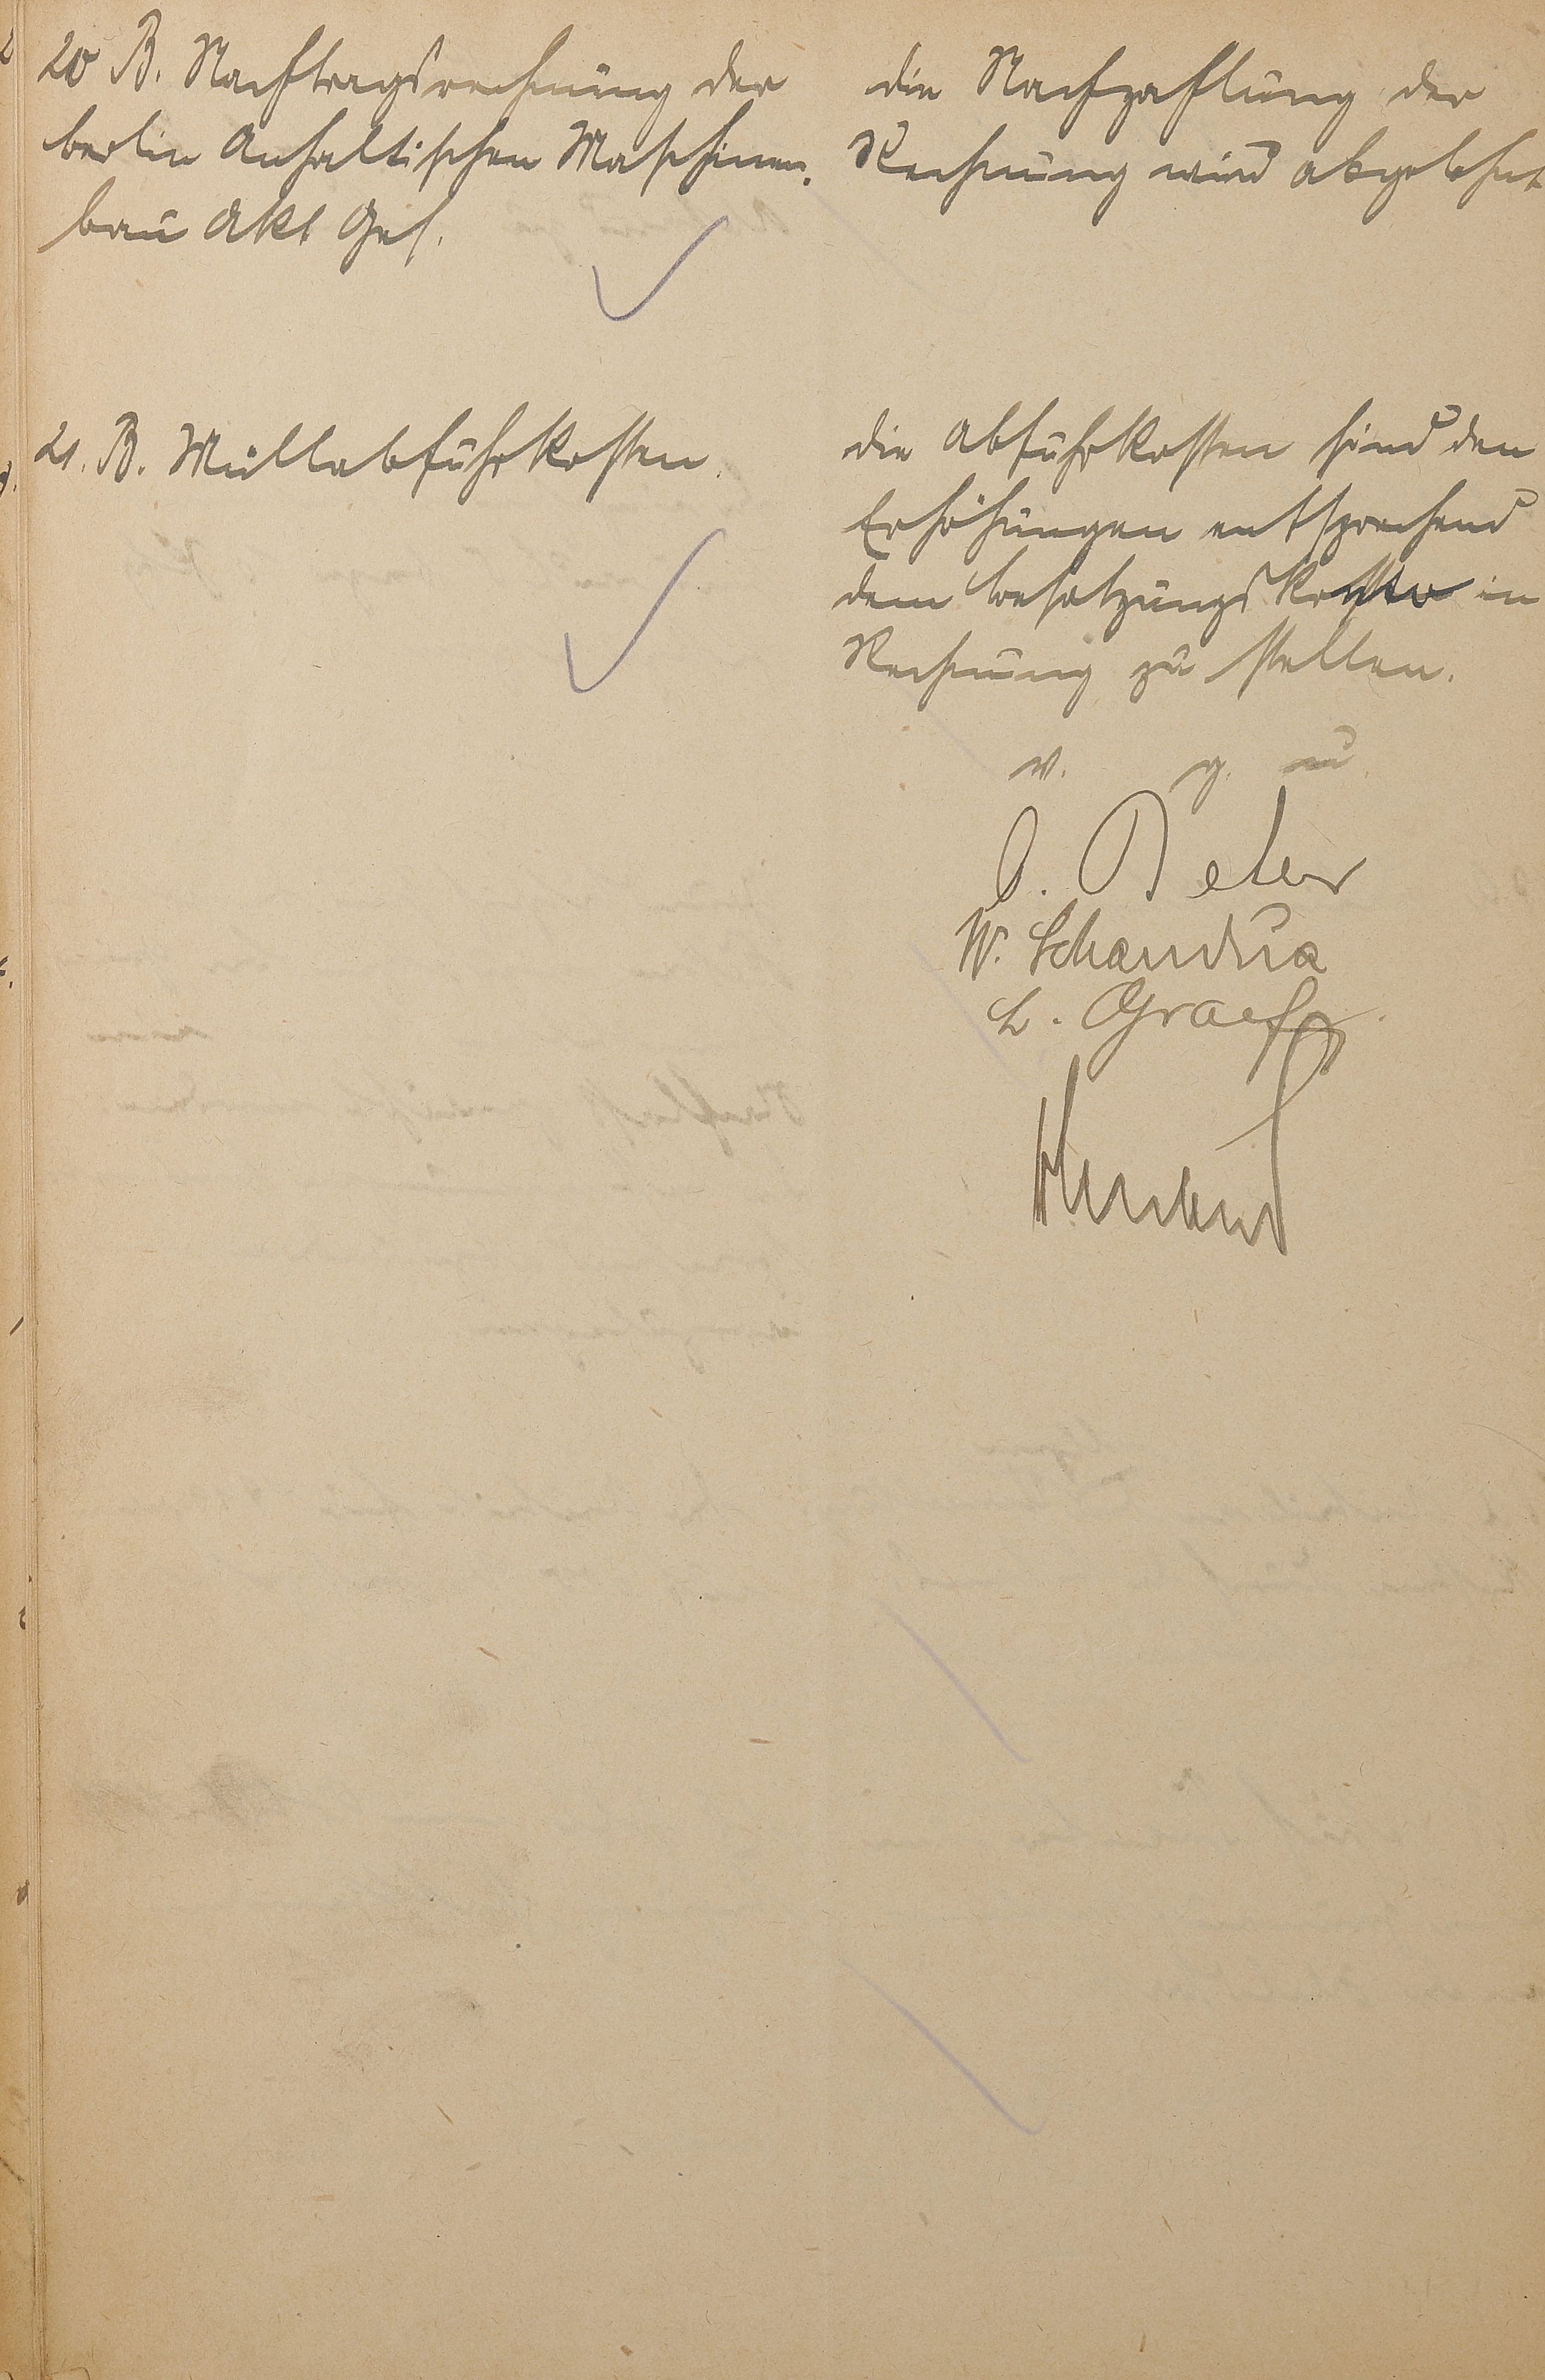 20 B. Nachtragsrechnung der
berlin Anhaltischen Maschinen.
bau Akt Ges.
die Nachzahlung der
Rechnung wird abgelehnt
21. B. Müllabfuhrkosten.
die Abfuhrkosten sind den
Erhöhungen entsprechend
dem besatzungskonto in
Rechnung zu stellen.
v. g. u.
W. Schandua
L. Graef